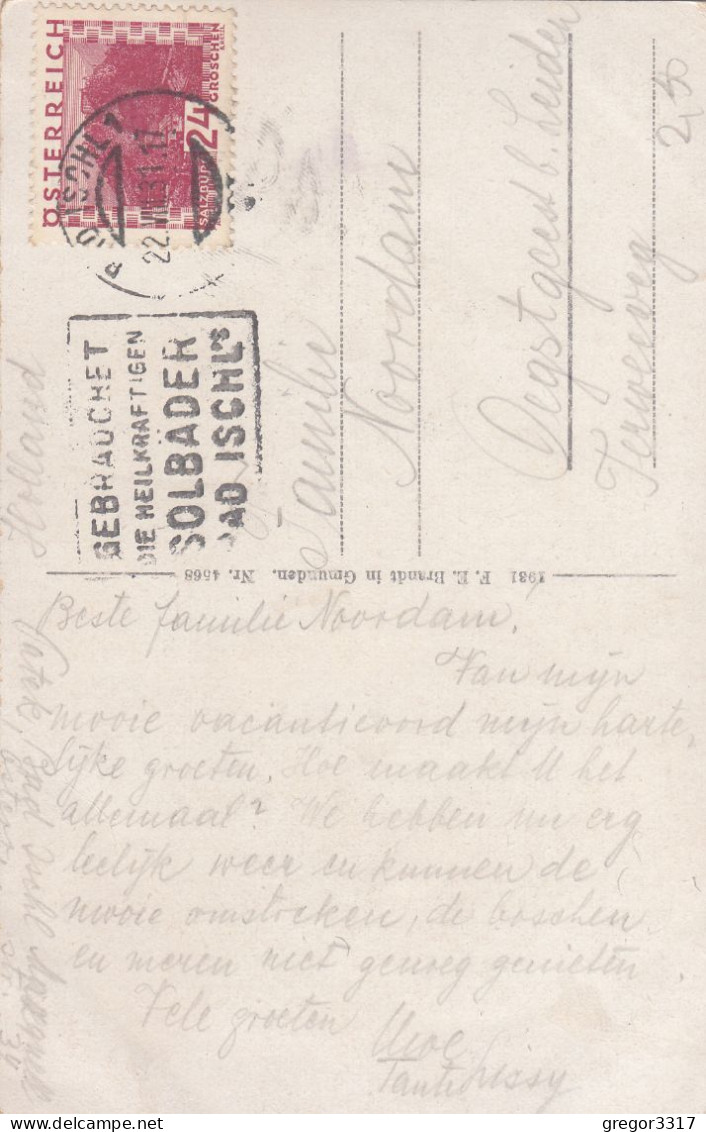 ÖSTERREICH
24
GROSCHEN
SALZBURG
BAD ISCHL 1
22.VII.31.17
GEBRAUCHET
DIE HEILKRÄFTIGEN
SOLBÄDER
BAD ISCHL'S
2,50
Familie
Noordam
Oegstgeest b. Leiden
Terweeweg
Holland
1931 F. E. Brandt in Gmunden. Nr. 4568
Beste familie Noordam,
Van mijn
mooie vacantieoord mijn harte,
lijke groeten. Hoe maakt U het
allemaal? We hebben nu erg
leelijk weer en kunnen de
mooie omstreken, de bosschen
en meren niet genoeg genieten
Vele groeten
Uwe
Tante Lissy
Bad Ischl
34
gregor3317